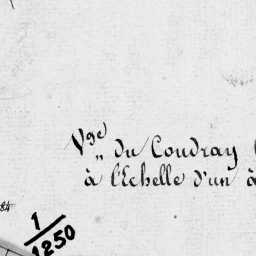 Vge
„ du Coudray
à l'Echelle d'un à
84
1
1250